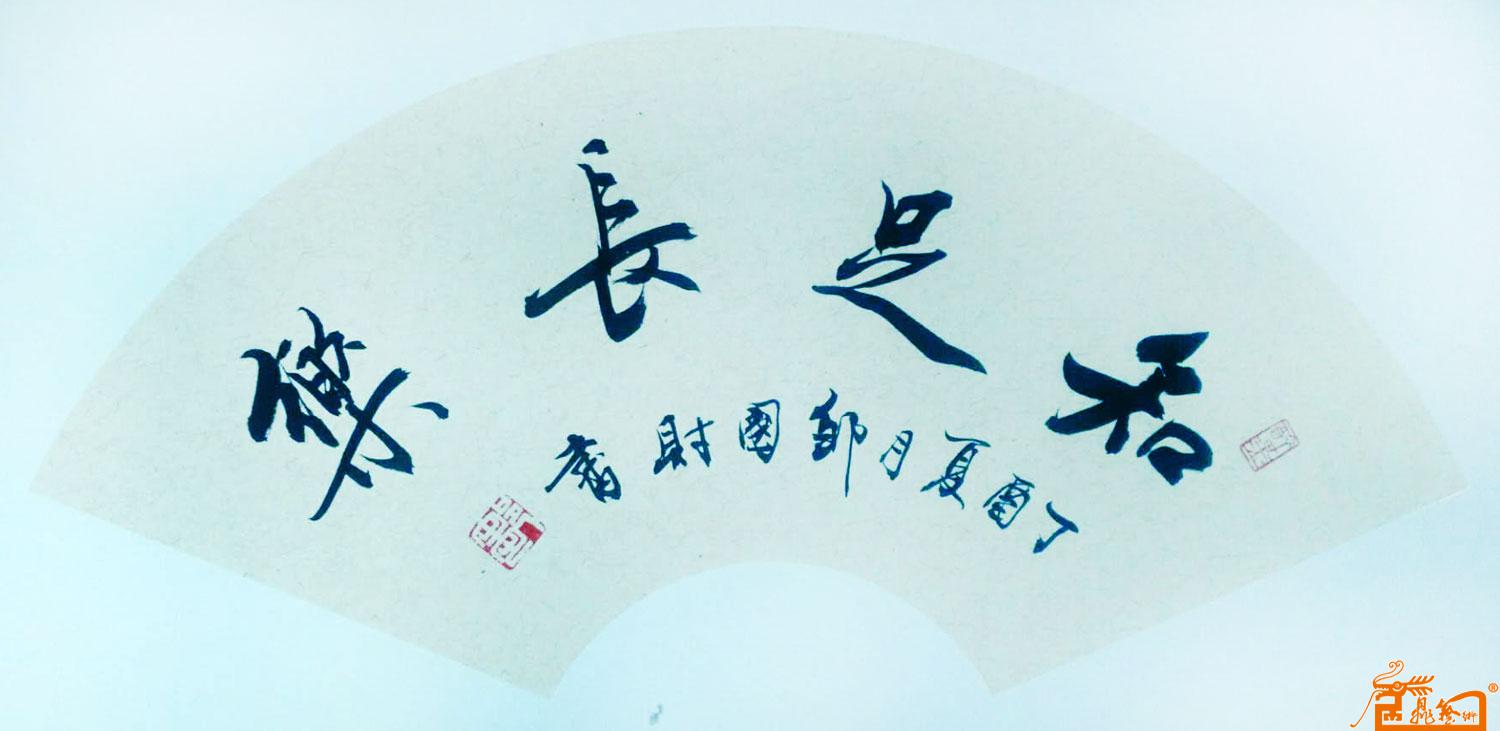 知足長樂
丁酉夏月國財書